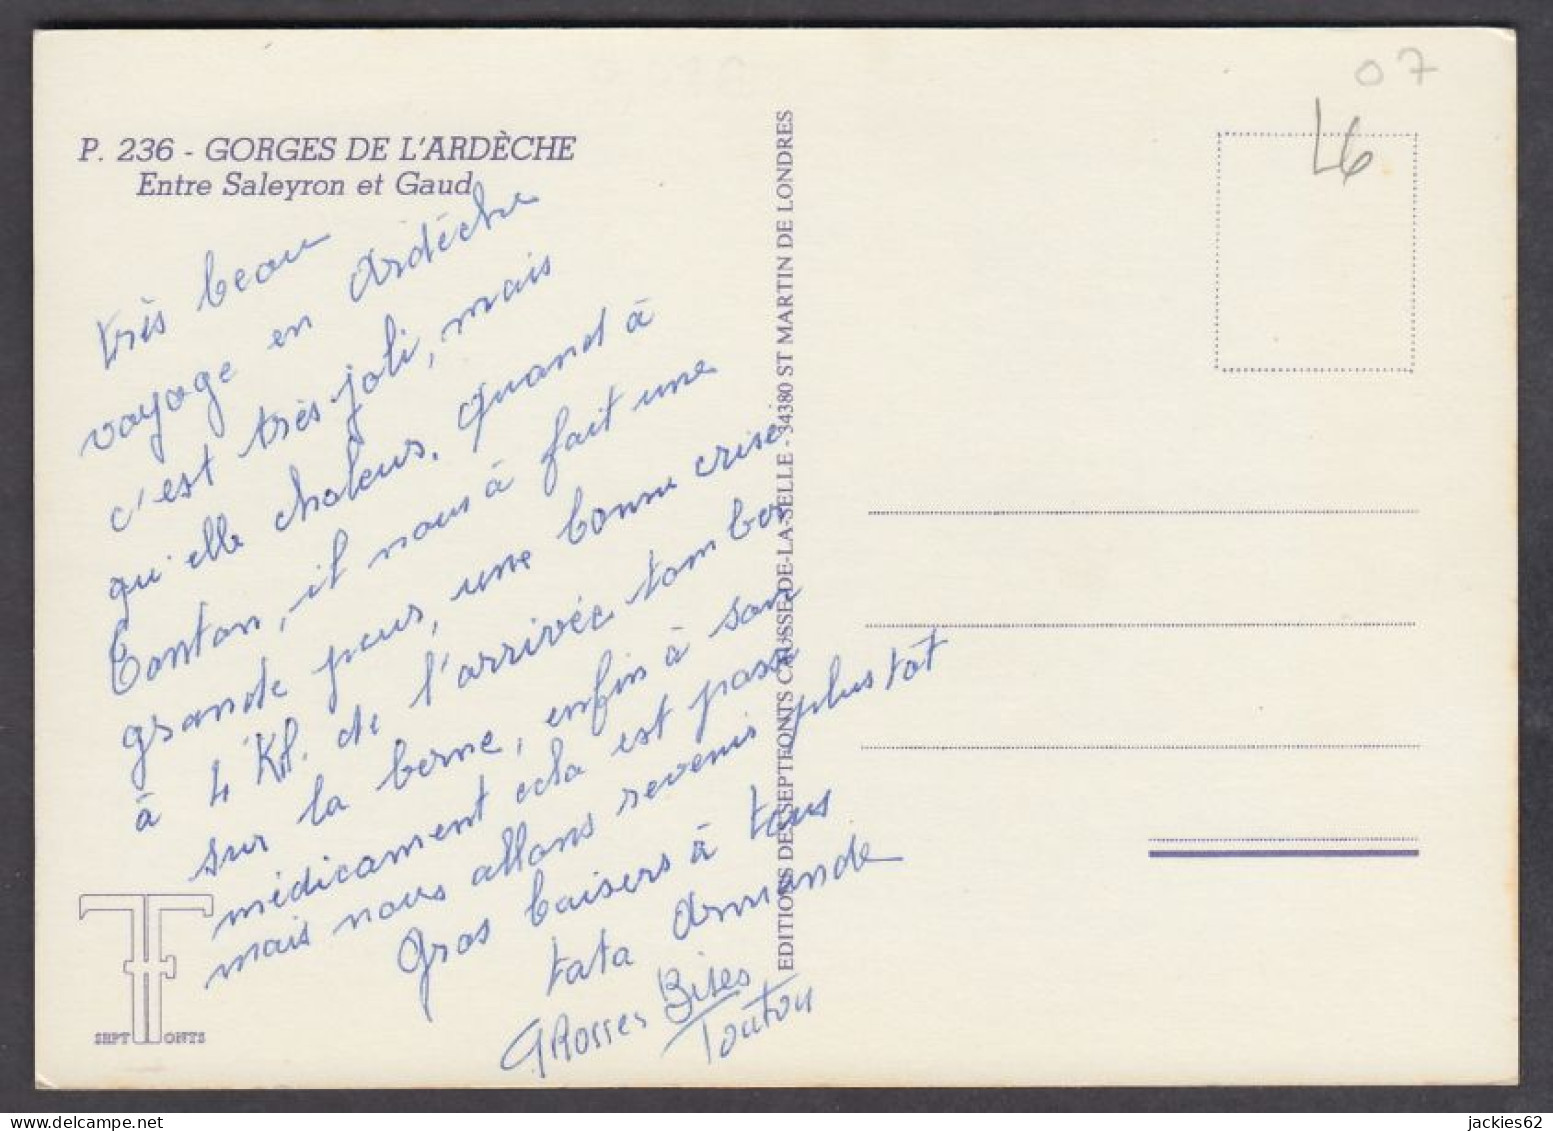 P. 236 - GORGES DE L'ARDÈCHE
Entre Saleyron et Gaud
très beau
voyage en Ardèche
c'est très joli, mais
qu'elle chaleur. quand à
Tonton, il nous à fait une
grande peur, une bonne crise
à 4 KM. de l'arrivée tomber
sur la berne, enfin à son
médicament cela est passé
mais nous allons revenir plus tot
Gros baisers à tous
tata Armande
GRosses Bises
Tonton
SEPT FONTS
EDITIONS DES SEPTFONTS CAUSSE-DE-LA-SELLE - 34380 ST MARTIN DE LONDRES
07
L6
jackies62
www.delcampe.net